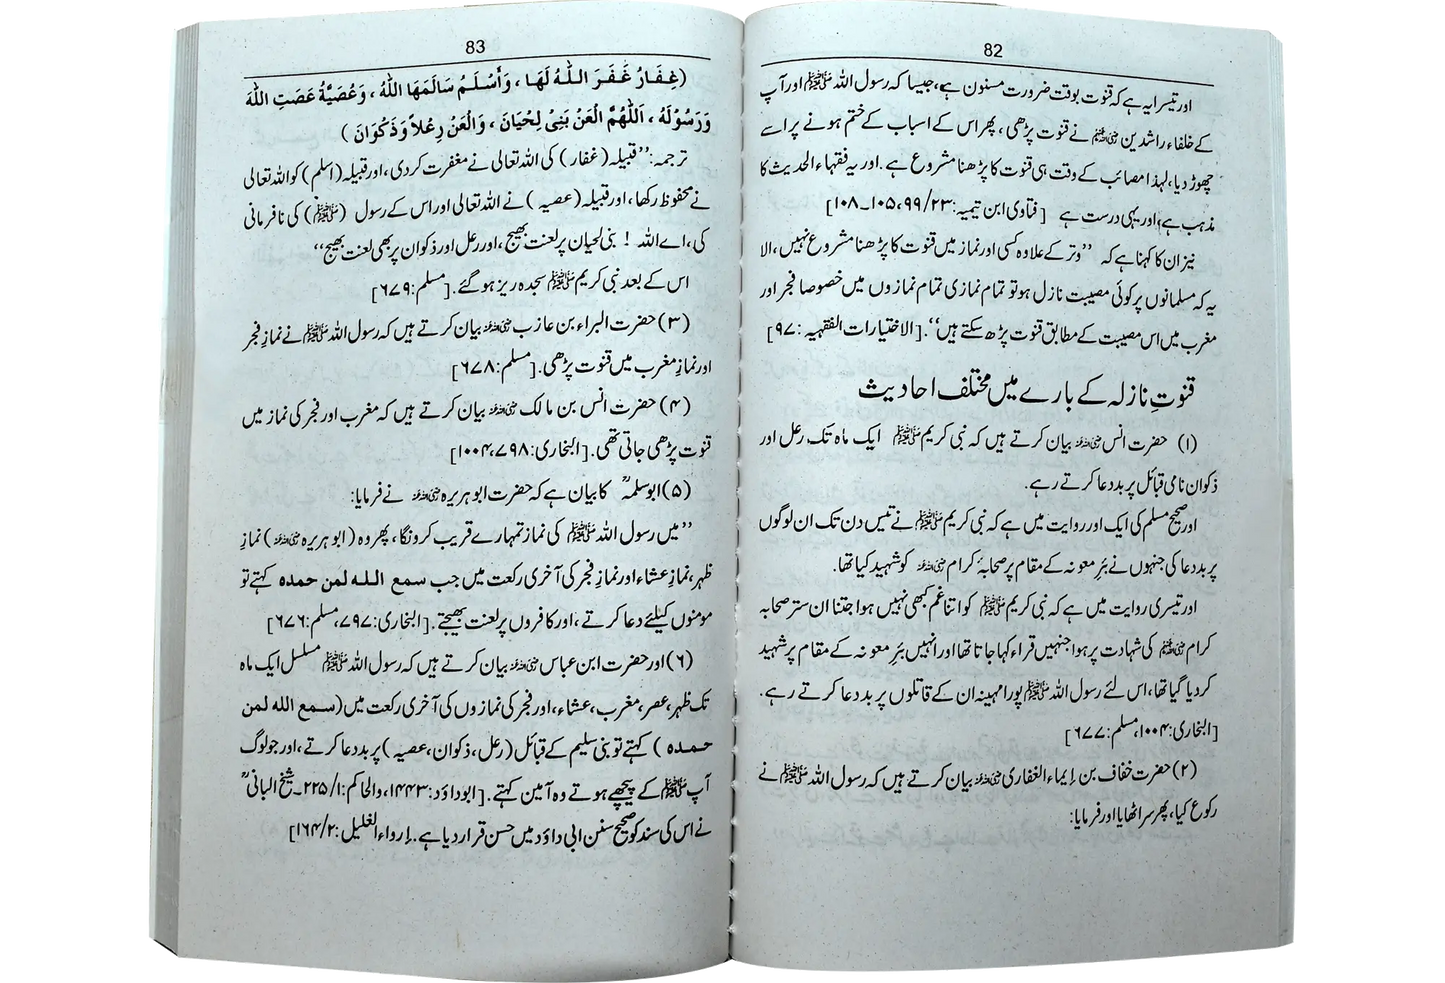 82
اور تیسرا یہ ہے کہ قنوت بوقت ضرورت مسنون ہے، جیسا کہ رسول اللہ ﷺ اور آپ
کے خلفاء راشدین رضی اللہ عنہم نے قنوت پڑھی، پھر اس کے اسباب کے ختم ہونے پر اسے
چھوڑ دیا، لہذا مصائب کے وقت ہی قنوت کا پڑھنا مشروع ہے۔ اور یہ فقہاء الحدیث کا
مذہب ہے، اور یہی درست ہے [فتاوی ابن تیمیہ: ۲۳/۹۹، ۱۰۵۔۱۰۸]
نیز ان کا کہنا ہے کہ ”وتر کے علاوہ کسی اور نماز میں قنوت کا پڑھنا مشروع نہیں، الا
یہ کہ مسلمانوں پر کوئی مصیبت نازل ہو تو تمام نمازی تمام نمازوں میں خصوصا فجر اور
مغرب میں اس مصیبت کے مطابق قنوت پڑھ سکتے ہیں“۔ [الاختیارات الفقہیہ: ۹۷]
قنوتِ نازلہ کے بارے میں مختلف احادیث
(۱) حضرت انس رضی اللہ عنہ بیان کرتے ہیں کہ نبی کریم ﷺ ایک ماہ تک رعل اور
ذکوان نامی قبائل پر بددعا کرتے رہے۔
اور صحیح مسلم کی ایک اور روایت میں ہے کہ نبی کریم ﷺ نے تیس دن تک ان لوگوں
پر بددعا کی جنہوں نے بئرِ معونہ کے مقام پر صحابہٴ کرام رضی اللہ عنہم کو شہید کیا تھا۔
اور تیسری روایت میں ہے کہ نبی کریم ﷺ کو اتنا غم کبھی نہیں ہوا جتنا ان ستر صحابہ
کرام رضی اللہ عنہم کی شہادت پر ہوا جنہیں قراء کہا جاتا تھا اور انہیں بئرِ معونہ کے مقام پر شہید
کردیا گیا تھا، اس لئے رسول اللہ ﷺ پورا مہینہ ان کے قاتلوں پر بددعا کرتے رہے۔
[البخاری: ۱۰۰۴، مسلم: ۶۷۷]
(۲) حضرت خفاف بن إیماء الغفاری رضی اللہ عنہ بیان کرتے ہیں کہ رسول اللہ ﷺ نے
رکوع کیا، پھر سر اٹھایا اور فرمایا:
83
(غِفَارُ غَفَرَ اللّٰهُ لَهَا، وَأَسْلَمُ سَالَمَهَا اللّٰهُ، وَعُصَيَّةُ عَصَتِ اللّٰهَ
وَرَسُوْلَهُ، اَللّٰهُمَّ الْعَنْ بَنِيْ لِحْيَانَ، وَالْعَنْ رِعْلاً وَذَكْوَانَ)
ترجمہ: ”قبیلہ (غفار) کی اللہ تعالی نے مغفرت کردی، اور قبیلہ (اسلم) کو اللہ تعالی
نے محفوظ رکھا، اور قبیلہ (عصیہ) نے اللہ تعالی اور اس کے رسول (ﷺ) کی نافرمانی
کی، اے اللہ ! بنی لحیان پر لعنت بھیج، اور رعل اور ذکوان پر بھی لعنت بھیج“
اس کے بعد نبی کریم ﷺ سجدہ ریز ہوگئے۔ [مسلم: ۶۷۹]
(۳) حضرت البراء بن عازب رضی اللہ عنہ بیان کرتے ہیں کہ رسول اللہ ﷺ نے نمازِ فجر
اور نمازِ مغرب میں قنوت پڑھی۔ [مسلم: ۶۷۸]
(۴) حضرت انس بن مالک رضی اللہ عنہ بیان کرتے ہیں کہ مغرب اور فجر کی نماز میں
قنوت پڑھی جاتی تھی۔ [البخاری: ۷۹۸، ۱۰۰۴]
(۵) ابو سلمہؒ کا بیان ہے کہ حضرت ابو ہریرہ رضی اللہ عنہ نے فرمایا:
”میں رسول اللہ ﷺ کی نماز تمہارے قریب کرونگا، پھر وہ (ابو ہریرہ رضی اللہ عنہ) نمازِ
ظہر، نمازِ عشاء اور نمازِ فجر کی آخری رکعت میں جب سمع اللہ لمن حمدہ کہتے تو
مومنوں کیلئے دعا کرتے، اور کافروں پر لعنت بھیجتے۔ [البخاری: ۷۹۷، مسلم: ۶۷۶]
(۶) اور حضرت ابن عباس رضی اللہ عنہ بیان کرتے ہیں کہ رسول اللہ ﷺ مسلسل ایک ماہ
تک ظہر، عصر، مغرب، عشاء، اور فجر کی نمازوں کی آخری رکعت میں (سمع اللہ لمن
حمدہ) کہتے تو بنی سلیم کے قبائل (رعل، ذکوان، عصیہ) پر بددعا کرتے، اور جو لوگ
آپ ﷺ کے پیچھے ہوتے وہ آمین کہتے۔ [ابوداؤد: ۱۴۴۳، والحاکم: ۱/۲۲۵۔ شیخ البانیؒ
نے اس کی سند کو صحیح سنن ابی داؤد میں حسن قرار دیا ہے۔ إرواء الغلیل: ۲/۱۶۴]